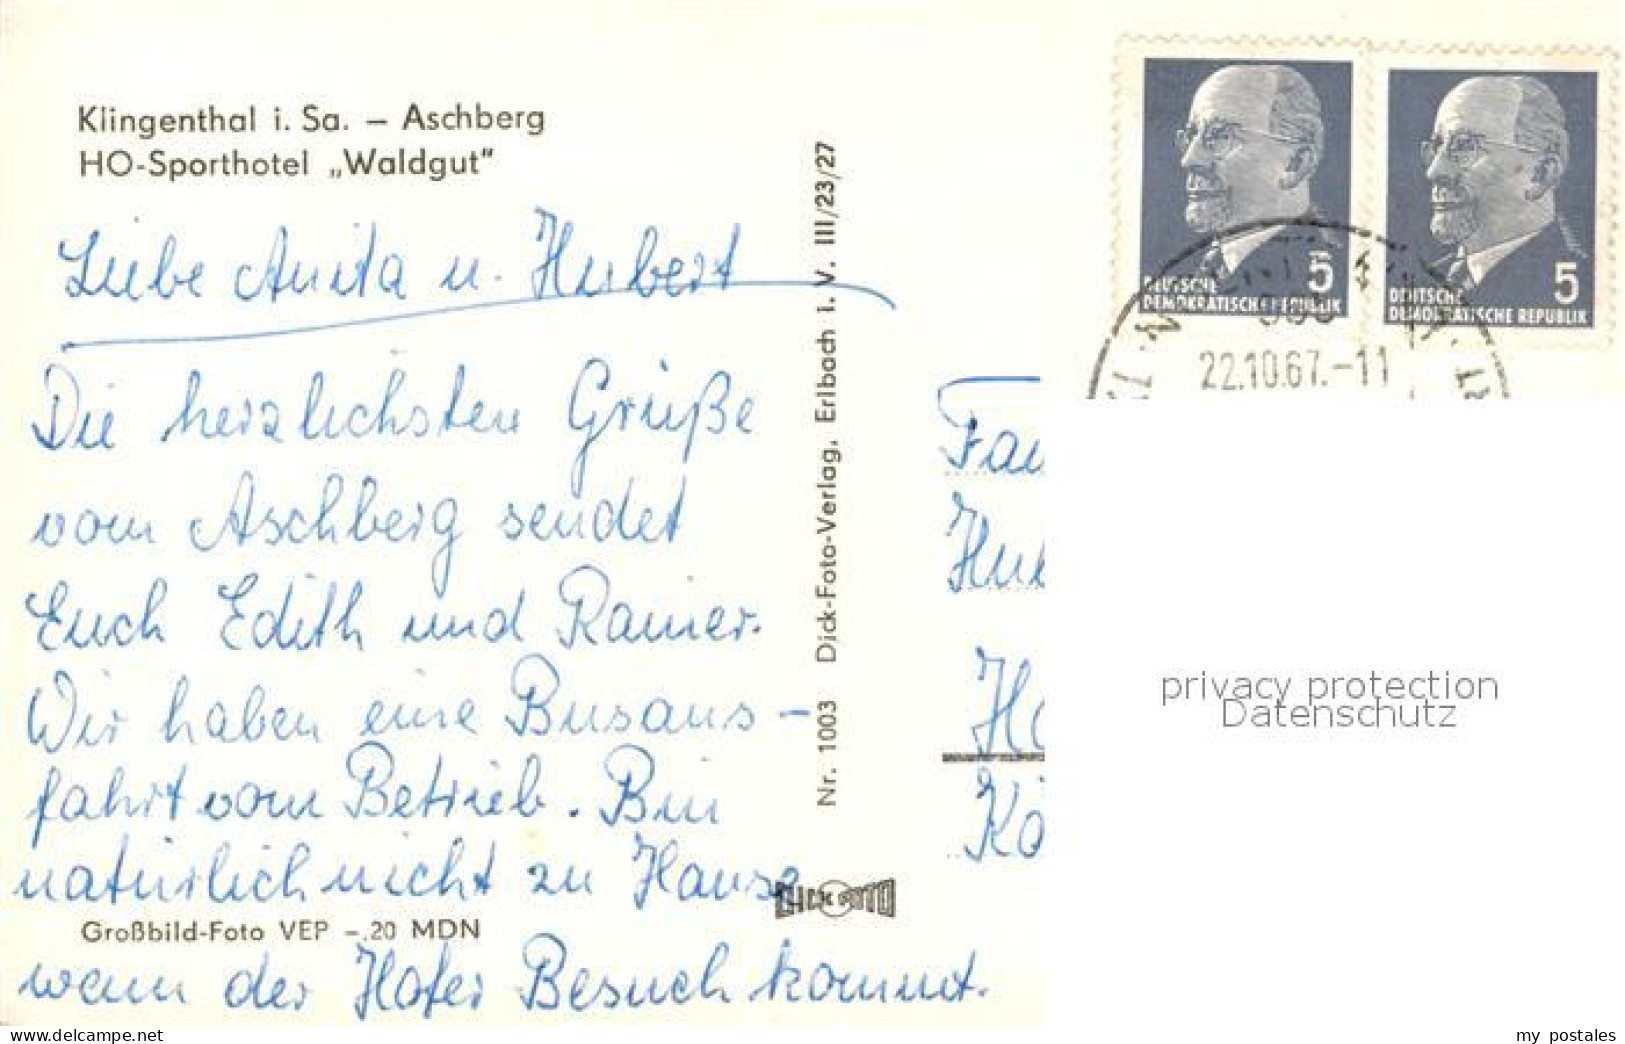 Klingenthal i. Sa. – Aschberg
HO-Sporthotel „Waldgut"
Liebe Anita u. Hubert
Die herzlichsten Grüße
vom Aschberg sendet
Euch Edith und Rainer.
Wir haben eine Busaus-
fahrt vom Betrieb. Bin
natürlich nicht zu Hause
Großbild-Foto VEP -.20 MDN
wenn der Hofer Besuch kommt.
Nr. 1003 Dick-Foto-Verlag, Erlbach i. V. III/23/27
DICK FOTO
DEUTSCHE
DEMOKRATISCHE REPUBLIK
5
DEUTSCHE
DEMOKRATISCHE REPUBLIK
5
22.10.67.-11
Fa
Hu
Ho
Kö
privacy protection
Datenschutz
www.delcampe.net
my postales